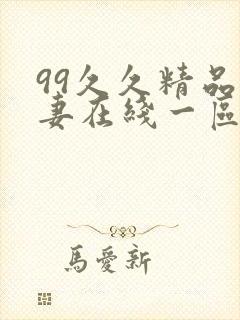 99久久精品
妻在綫一區
馬愛新